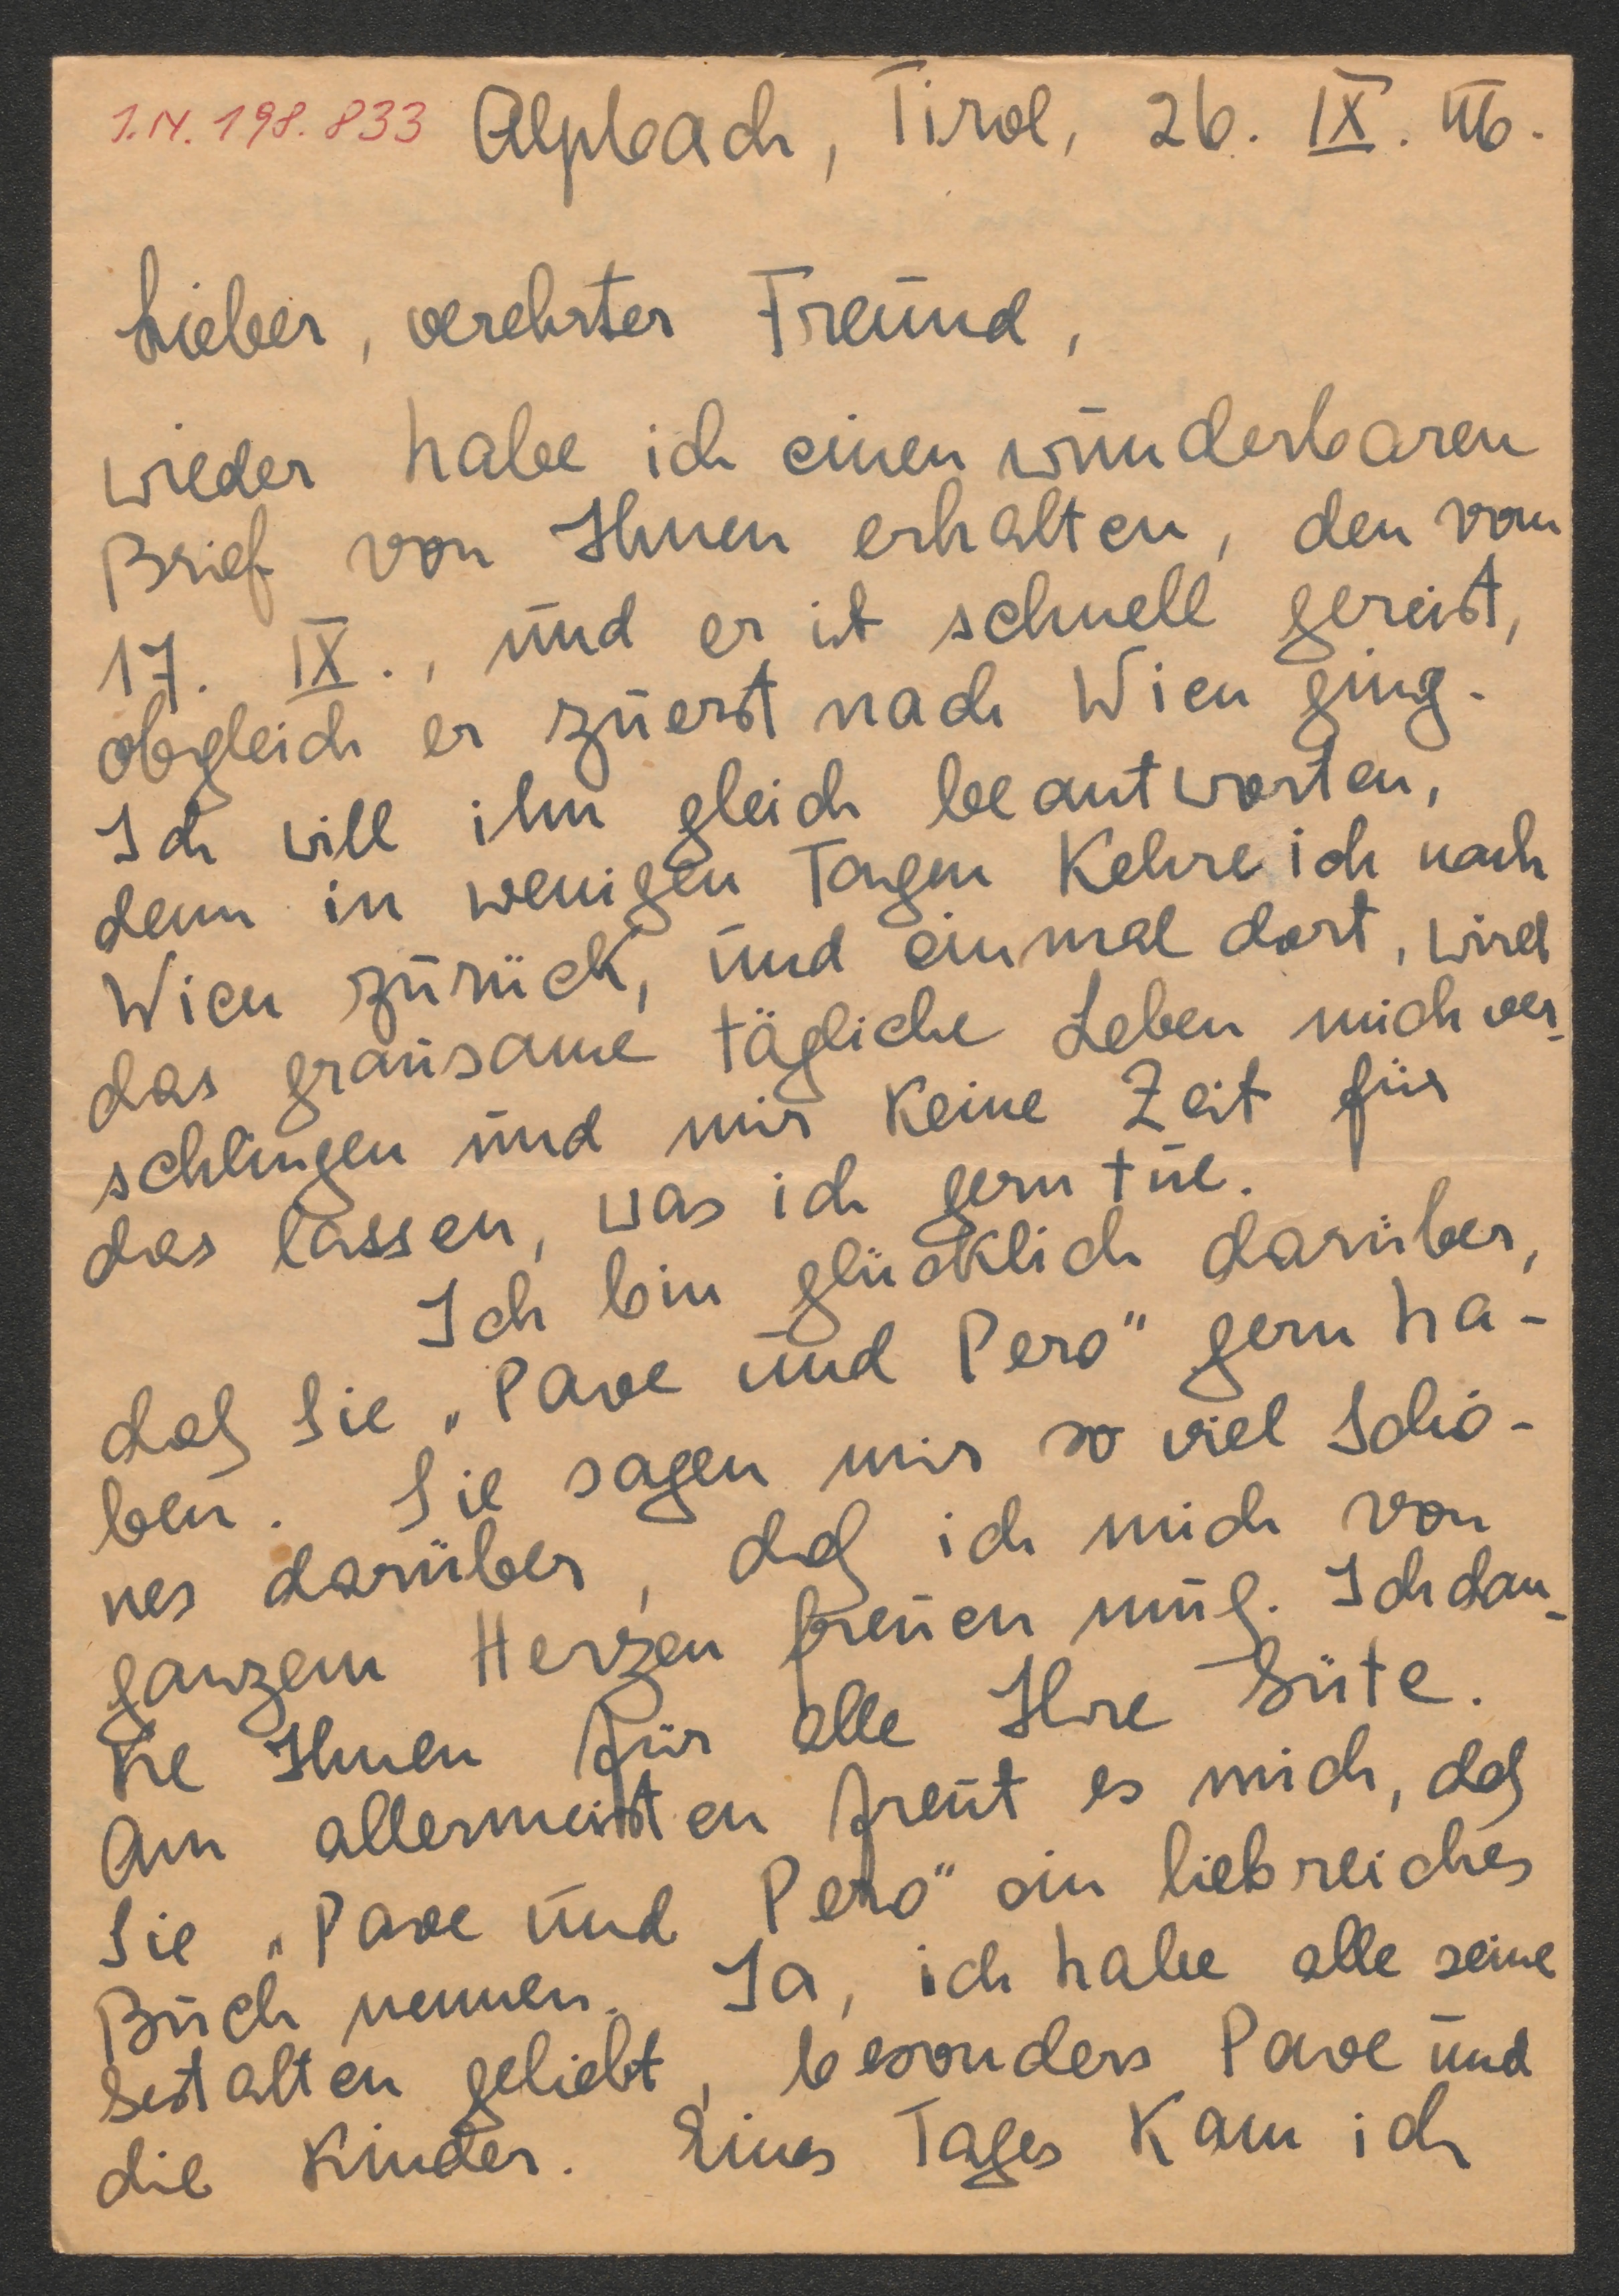 I.N. 198.833 Alpbach, Tirol, 26. IX. 46.
Lieber, verehrter Freund,
wieder habe ich einen wunderbaren
Brief von Ihnen erhalten, den vom
17. IX., und er ist schnell gereist,
obgleich er zuerst nach Wien ging.
Ich will ihn gleich beantworten,
denn in wenigen Tagen kehre ich nach
Wien zurück, und einmal dort, wird
das grausame tägliche Leben mich ver-
schlingen und mir keine Zeit für
das lassen, was ich gern tue.
Ich bin glücklich darüber,
daß Sie „Pave und Pero" gern ha-
ben. Sie sagen mir so viel Schö-
nes darüber, daß ich mich von
ganzem Herzen freuen muß. Ich dan-
ke Ihnen für alle Ihre Güte.
Am allermeisten freut es mich, daß
Sie „Pave und Pero" ein liebreiches
Buch nennen. Ja, ich habe alle seine
Gestalten geliebt, besonders Pave und
die Kinder. Eines Tages kam ich